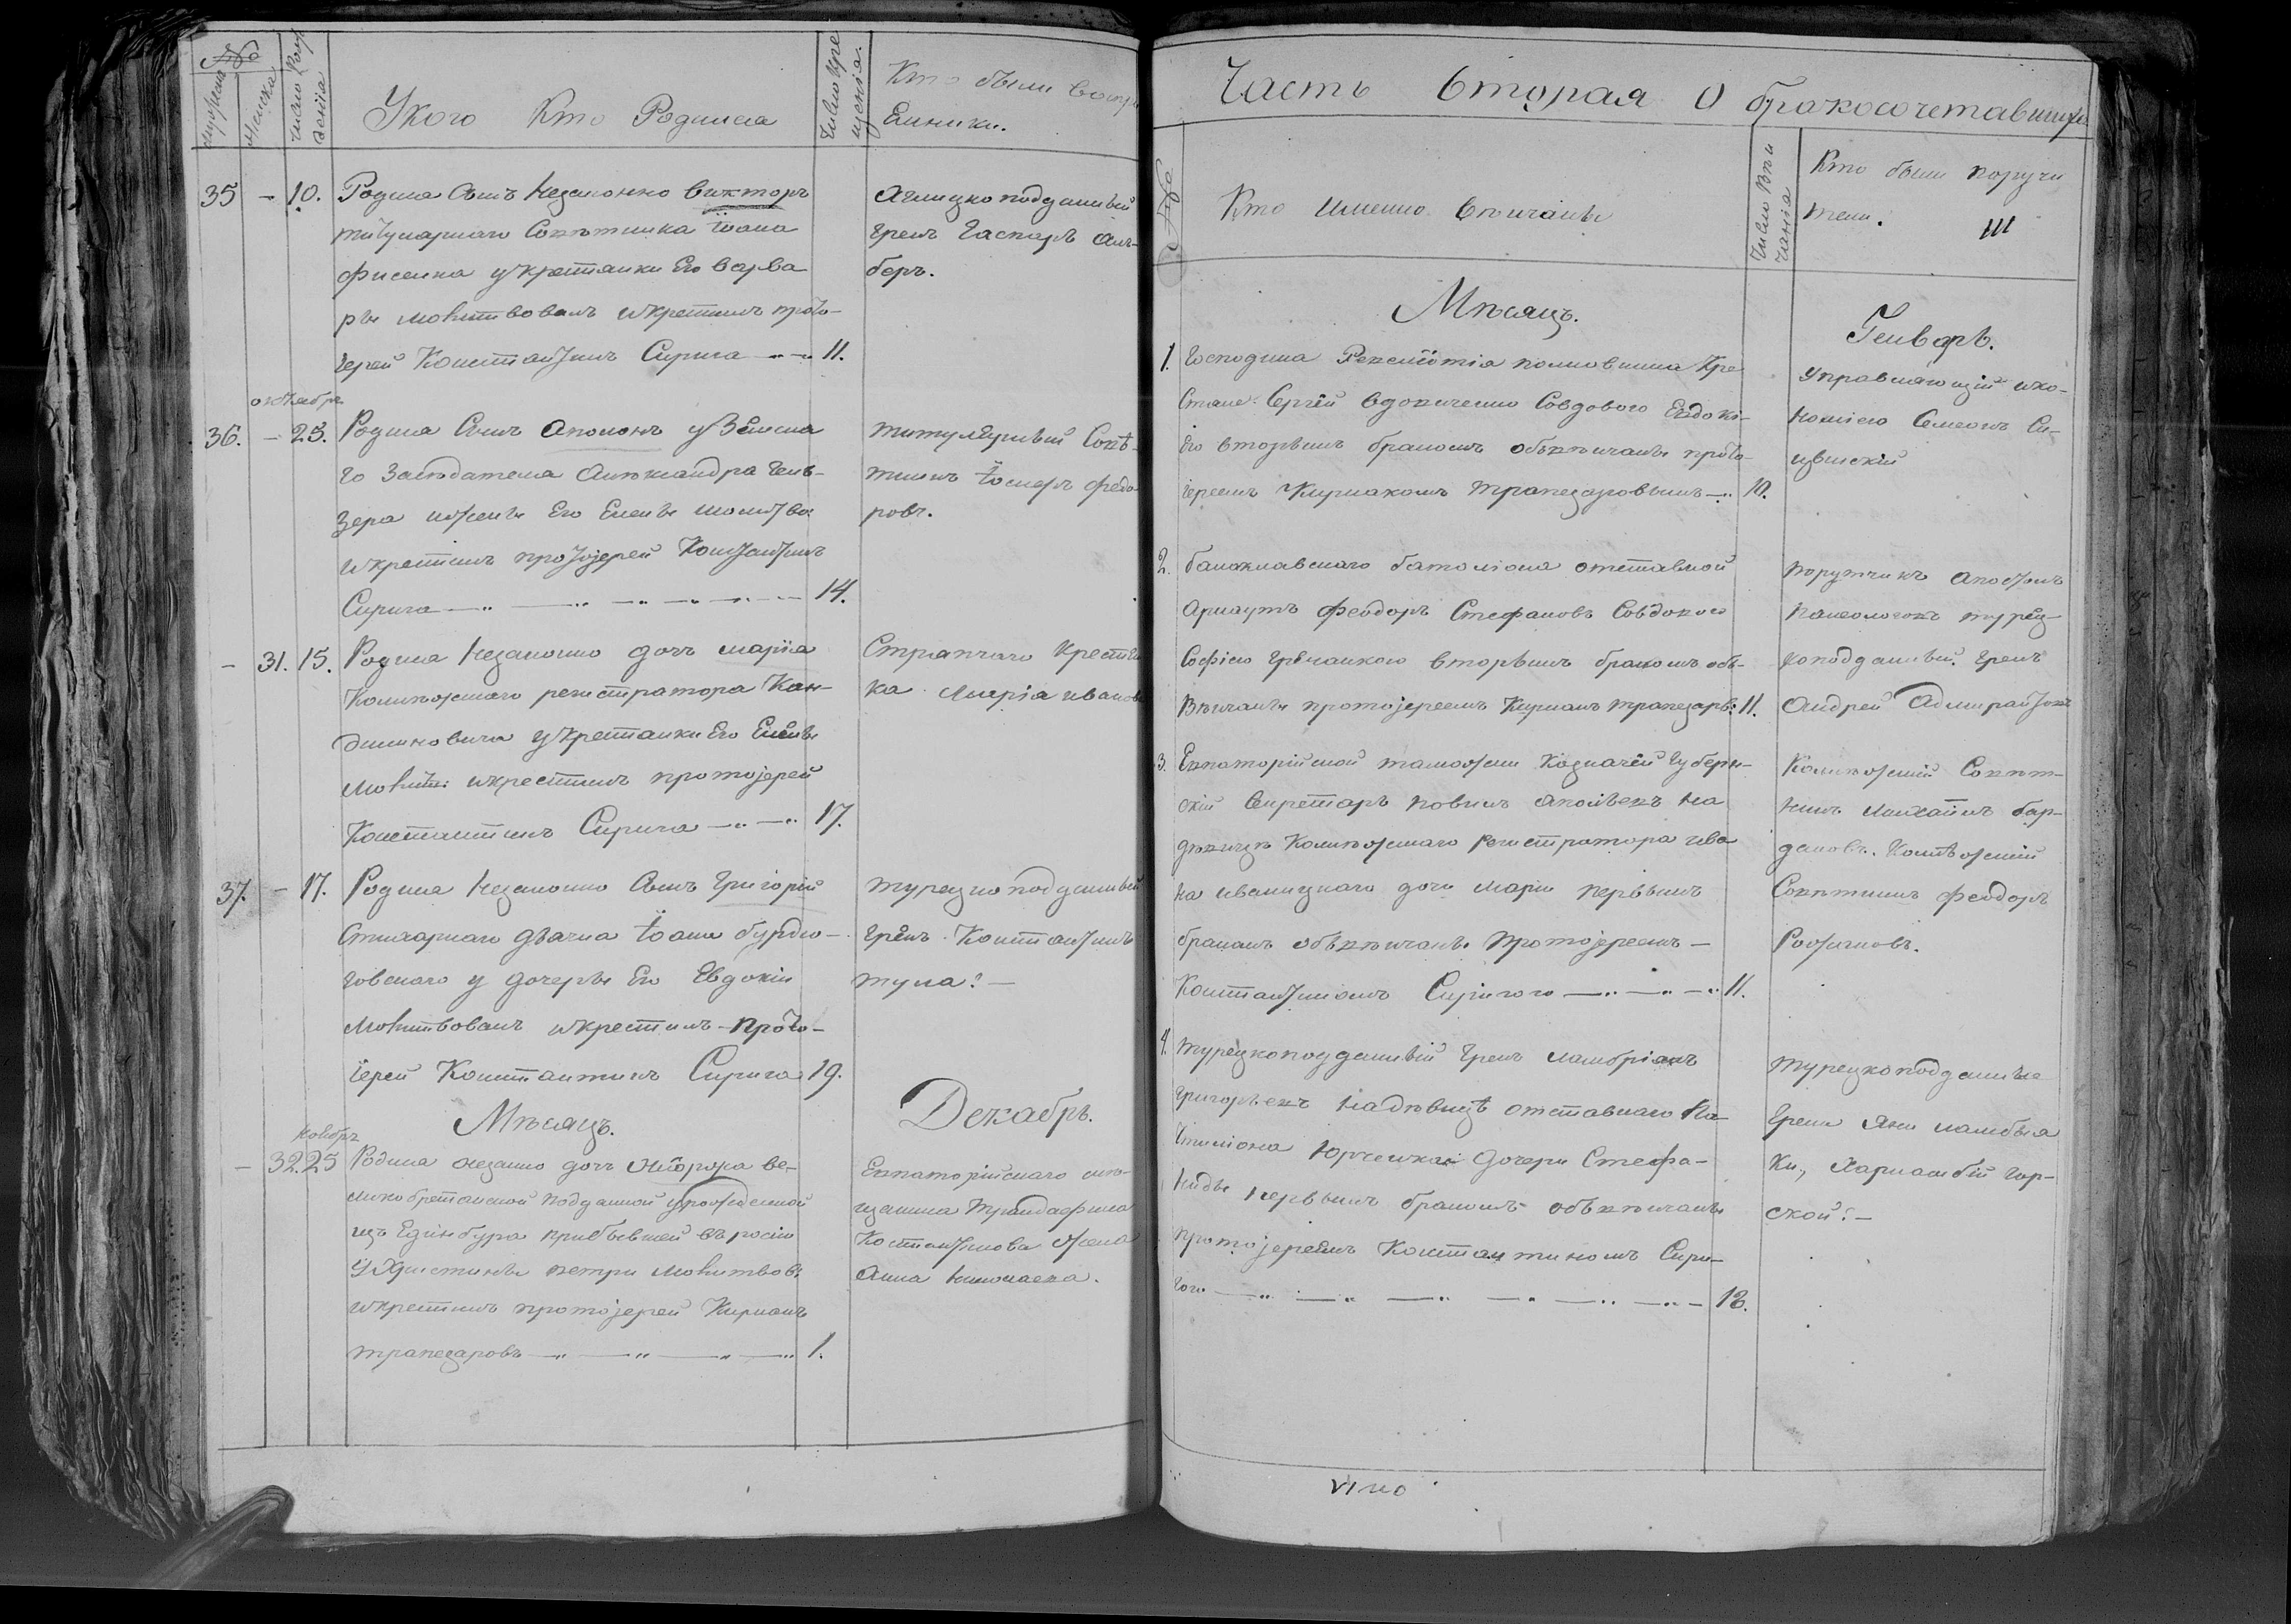 №
мужеска
женска
число рож
денія
У кого Кто Родился
Число кре
щенія.
Кто были воспрі
емники.
35 – 10. Родился Сынъ Незаконно Викторъ
титулярнаго Советника Іоана
Фисенка у крестянки Его Варва
ры молитвовалъ и крестилъ прото–
іерей Константинъ Сирига 11.
Аглицкоподданный
Грекъ Гаспаръ Ал–
беръ.
октября
36. – 25. Родился Сынъ Аполонъ у Земска
го Заседателя Александра
зера и жены Его Елены молитво:
и крестилъ протоіерей Константинъ
Сирига 14.
титулярный Совѣ–
тникъ Іосифъ Федо
ровъ.
– 31. 15. Родилась Незаконно дочь Марія
Колежскаго регистратора Кан–
диниовича у крестянки Его Елены
молитв: и крестилъ протоіерей
Константинъ Сирига 17.
Стряпчаго
ка Марія Иванов
37. – 17. Родился Незаконно Сынъ Григорій
Стихарнаго дьячка Іоана
говскаго у дочеры Его Евдокіи
молитвовалъ и крестилъ – прото–
іерей Константинъ Сирига 19.
турецкоподданный
Грекъ Константинъ
тула: –
Мѣсяцъ. Декабрь.
ноября
– 32. 25 Родилась незаконно дочь ве–
ликобретанской подданной урожденной
изъ Единбура прибывшей въ росію
у Христины петри молитвов:
и крестилъ протоіерей Киріакъ
трапезаровъ 1.
Евпаторійскаго мѣ–
щанина Трандафила
Костантинова Жена
Анна Николаева.
Часть Вторая О бракосочетавшихся
№
Кто именно Вѣнчаны
Число Вѣн
чанія
Кто были поручи
тели.
III
Мѣсяцъ. Генварь.
1. Господина половника Кре
стяне: Сергѣй вдовиченко Совдовою Евдокі–
ею вторымъ бракомъ обвѣнчаны прото–
іереемъ Киріакомъ трапезаровымъ 10.
Управляющій ико–
номіею Семенъ Си–
цынскій
2. балаклавскаго баталіона отставной
Арнаутъ Феодоръ Стефановъ Совдовою
Софіею Гречанкою вторымъ бракомъ об–
вѣнчаны протоіереемъ Киріакъ трапезаровъ: 11.
Порутчикъ Апостолъ
палеологовъ турец–
коподданный Грекъ
Андрей
3. Евпаторійской таможни Казначей Губерн–
скій Секретарь на
девицѣ Колежскаго Регистратора Ива
на Иваницкаго дочи Маріи первымъ
бракомъ обвѣнчаны протоіереемъ –
Константиномъ Сиригого 11.
Колежскій Совѣт–
никъ Михаилъ бар–
даковъ. Колежскій
Совѣтникъ Феодоръ
4. Турецкоподданный Грекъ Ламбріанъ
Григорьевъ на девицѣ отставнаго Ка
питиліона дочери Стефа–
ниды первымъ бракомъ обвѣнчаны
протоіереемъ Константиномъ Сири–
гого 18.
Турецкоподданные
Греки Яни ламбыя
ки, Харлампій Гор–
ской: –